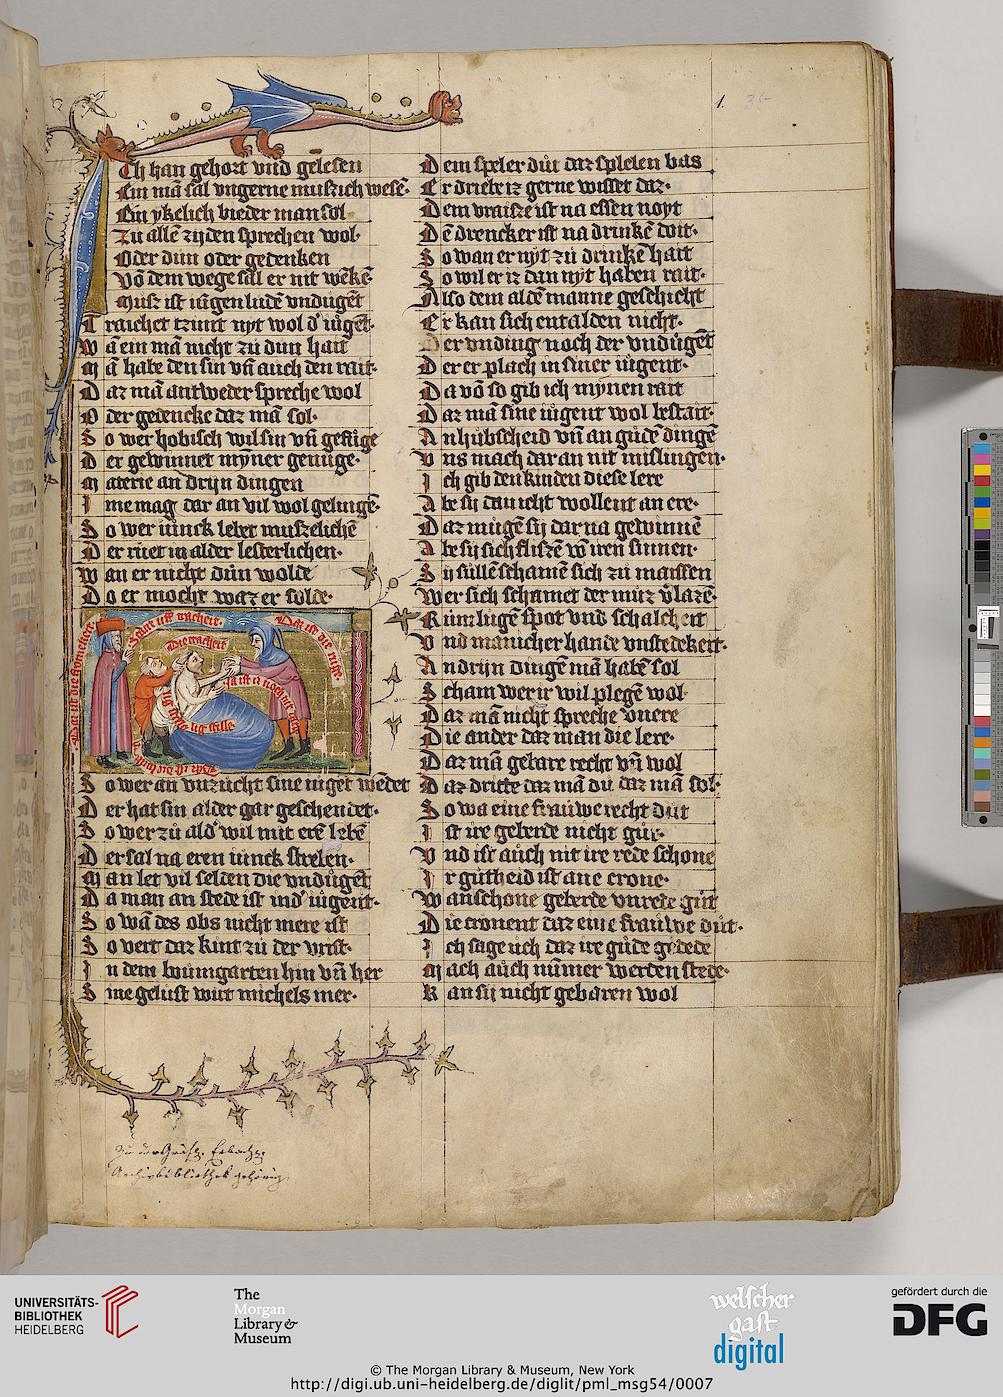 1. 35
Ich han gehort vnd gelesen
Ein mā sal vngerne mußzich wesē·
Ein ykelich bieder man sol
Zu allē zijden sprechen wol·
Oder dun oder gedenken
Vō dem wege sal er nit wēkē
Musz ist iūgen ludē vndugēt
Traicheit tzimt nyt wol d' iūgēt·
Wā ein mā nicht zu dun hait
Mā habe den sin vn̄ auch den rait·
Daz mā antweder spreche wol
Oder gedencke daz mā sol·
So wer hobisch wil sin vn̄ gefüge
Der gewinnet mȳner genuge·
Materie an drijn dingen
Ime mag dar an vil wol gelingē·
So wer iunck lebet muszelichē
Der ruet in alder lesterlichen·
Wan er nicht dün wolde
Do er mocht waz er solde·
So wer an vnzucht sine iuget wēdet
Der hat sin alder gar geschendet·
So wer zu ald' wil mit erē lebē
Der sal na eren iunck strelen·
Man let vil selden die vndugēt
Da man an stede ist in d' iugent·
So wā des obs nicht mere ist
So vert daz kint zu der vrist·
In dem boumgarten hin vn̄ her
Sine gelust wirt michels mer·
Dem speler dut daz spielen bas
Er driebe iz gerne wisset daz·
Dem vraisze ist na essen noyt
Dē drencker ist na drinkē doit·
So wan er nyt zu drinkē hait
So wil er iz dan nyt haben rait·
Also dem aldē manne geschieht
Er kan sich entalden nicht·
Der vnding noch der vndugēt
Der er plach in siner iugent·
Da vō so gib ich mynen rait
Daz mā sine iugent wol bestait·
An hubscheid vn̄ an gude dingē
Vns mach dar an nit mislingen·
Ich gib den kinden diese lere
Abe sij dan icht wollent an ere·
Daz mugē sij dar na gewinnē
Abe sij sich fliszē vō iren sinnen·
Sij sullē schamē sich zu maissen
Wer sich schamet der muz v̄lazē·
Rumlugē spot vnd schalcheit
Vnd manicher hande vnstedekeit·
An drijn dingē mā habē sol
Scham wer ir wil plegē wol
Daz mā nicht spreche vnere
Die ander daz man die lere·
Daz mā gebare recht vn̄ wol
Daz dritte daz mā du daz mā sol·
So wa eine frauwe recht dut
Ist ire geberde nicht gut·
Vnd ist auch nit ire rede schone
Ir gutheid ist ane crone·
Wan schone geberde vn̄ rede gut
Die cronent daz eine frauwe dut·
Ich sage uch daz ire gude getede
Mach auch nūmer werden stede·
Kan sij nicht gebaren wol
UNIVERSITÄTS-
BIBLIOTHEK
HEIDELBERG
The
Morgan
Library &
Museum
welscher
gast
digital
gefördert durch die
DFG
© The Morgan Library & Museum, New York
http://digi.ub.uni-heidelberg.de/diglit/pml_msg54/0007